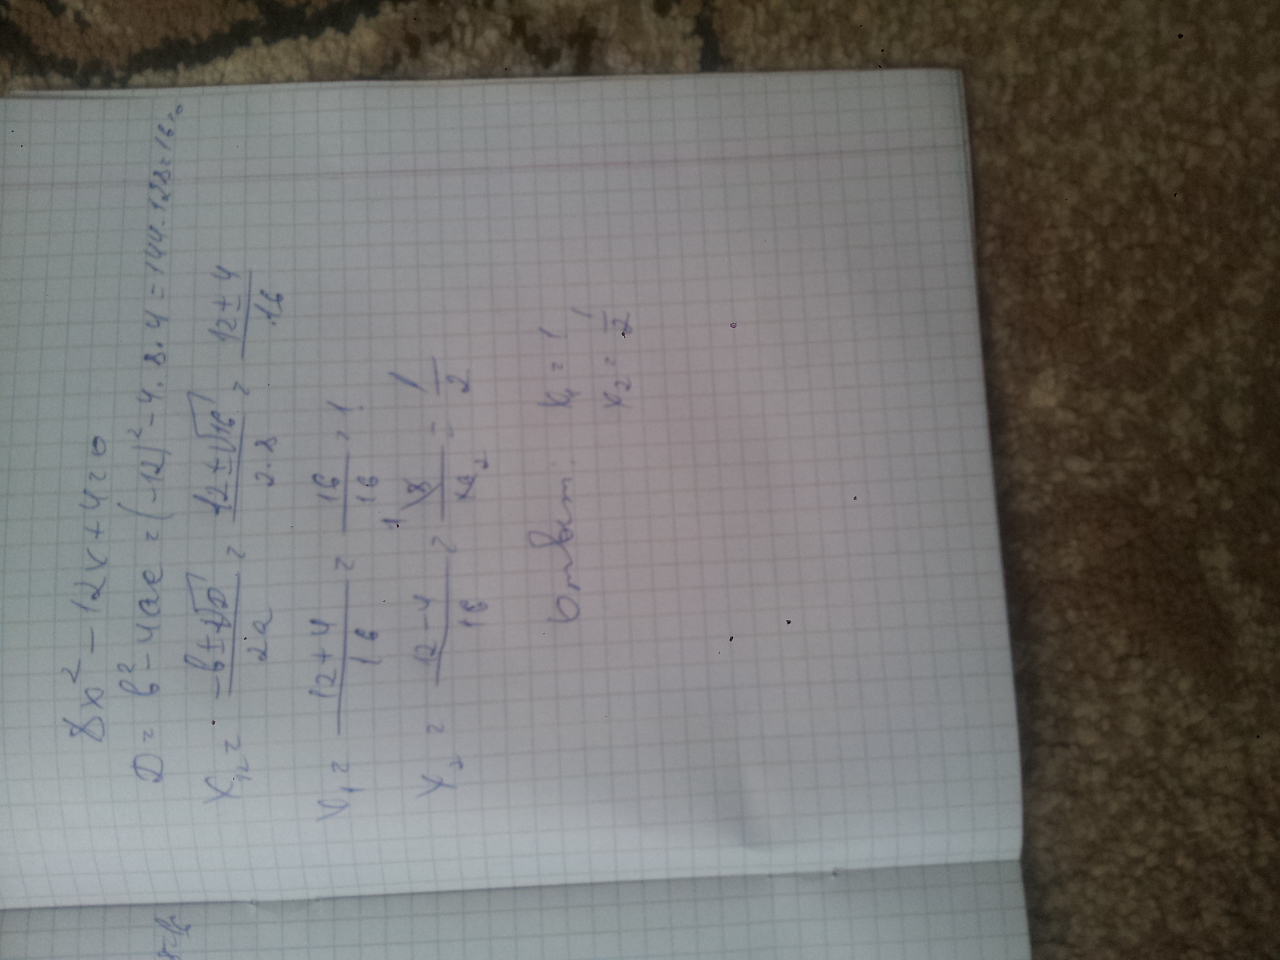 8x² - 12x + 4 = 0
D = b² - 4ac = (-12)² - 4 · 8 · 4 = 144 - 128 = 16 > 0
x₁,₂ = (-b ± √D) / 2a = (12 ± √16) / 2·8 = (12 ± 4) / 16
x₁ = (12 + 4) / 16 = 16 / 16 = 1
x₂ = (12 - 4) / 16 = 8 / 16 = 1 / 2
Ответ: x₁ = 1
x₂ = 1/2